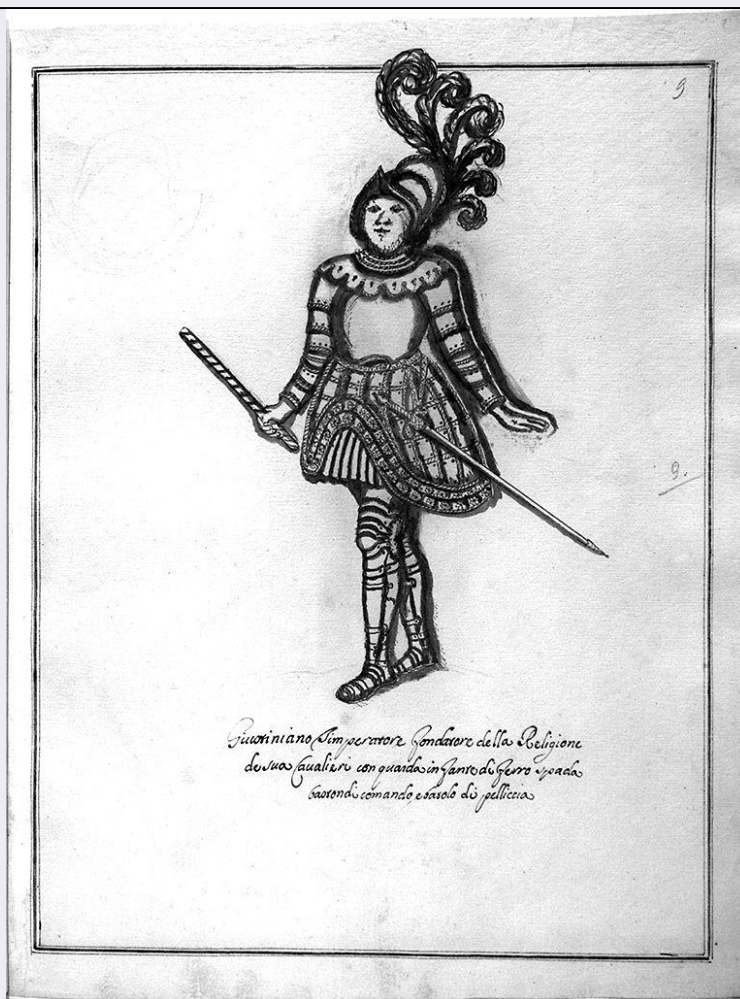 9
9.
Giustiniano Imperatore fondatore della Religione
de sua Cavalieri con guarda infante di ferro spada
baston di comando, e barolo di pelliccia